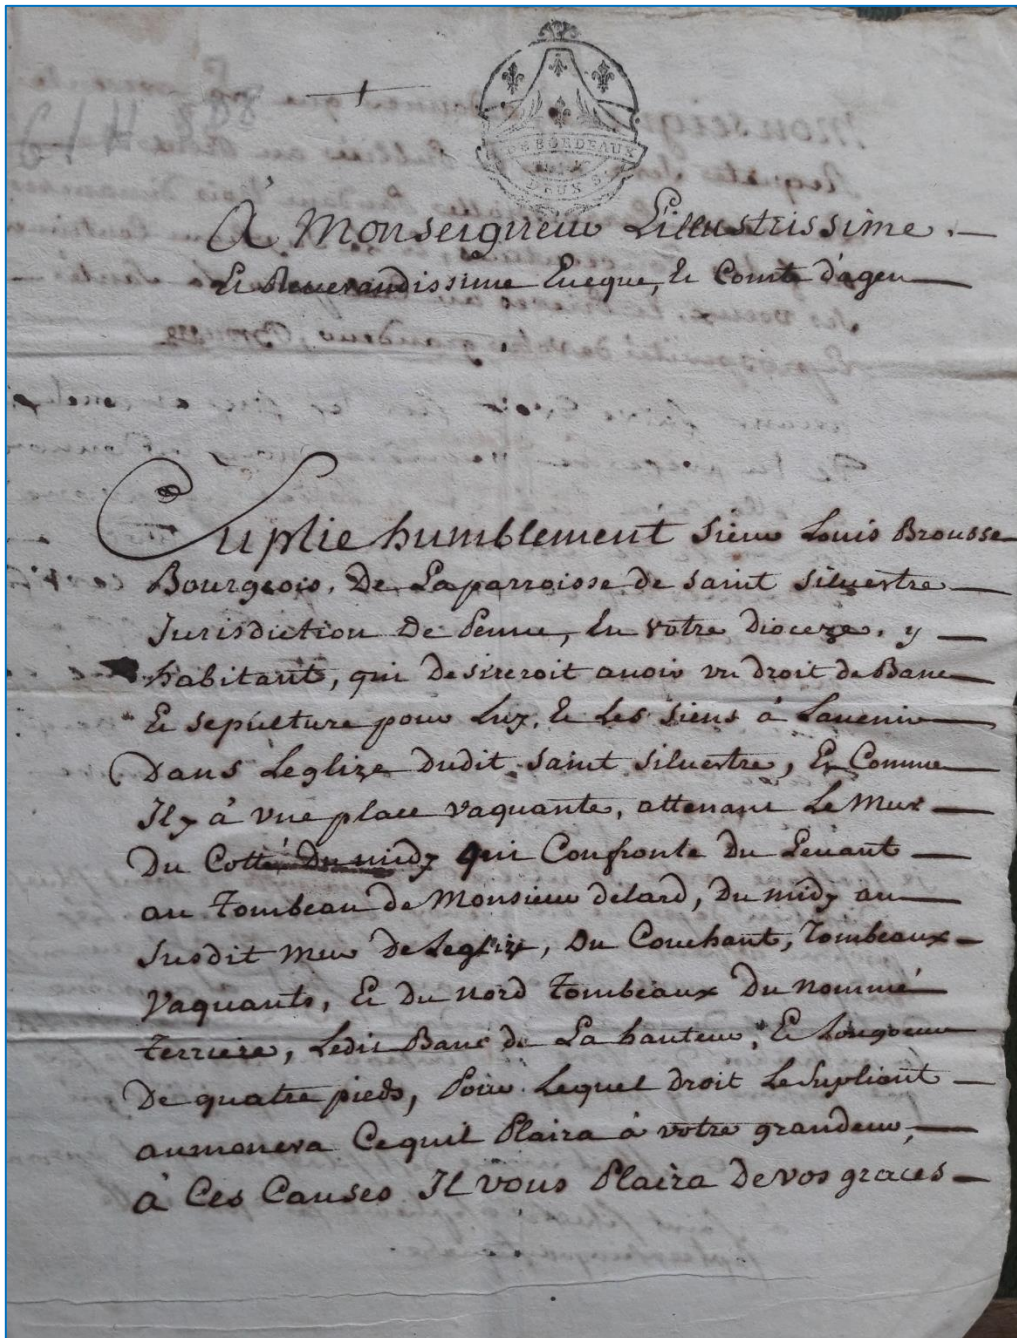 DE BORDEAUX
DEUX S
À Monseigneur Lillustrissime
Et Reverandissime Eveque, Et Comte d'agen
Suplie humblement Sieur Louis Brousse
Bourgeois, De Laparroisse de saint siluestre
Jurisdiction De Penne, En votre dioceze, y
habitant, qui desireroit auoir vn droit de Banc
Et sepulture pour Luy, Et Les siens à Lauenir
Dans Leglize dudit saint siluestre, Et Comme
Il y à vne place vaquante, attenant Le Mur
Du Cotté Du midy qui Confronte du Leuant
au Tombeau de Monsieur delard, du midy au
Susdit mur De Leglize, Du Couchant, Tombeaux
Vaquants, Et du nord Tombeaux Du nommé
Terriere, Ledit Banc de La hauteur, Et Longueur
De quatre pieds, Pour Lequel droit Le Supliant
aumonera Cequil Plaira à votre grandeur,
à Ces Causes Il vous Plaira De vos graces